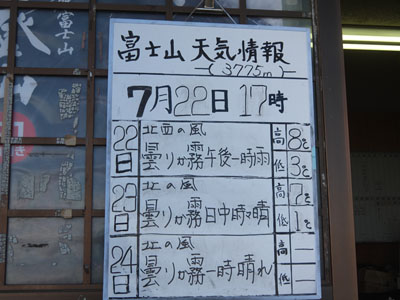 富士山 天気情報
(3775m)
7月22日 17時
22日 北西の風 高 8を
曇りか霧午後一時雨 低 3を
23日 北の風 高 7を
曇りか霧日中時々晴 低 1を
24日 北の風 高 —
曇りか霧一時晴れ 低 —
富士山